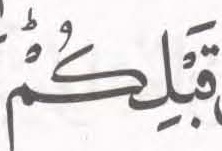 قَبْلِكُمْ ؕ